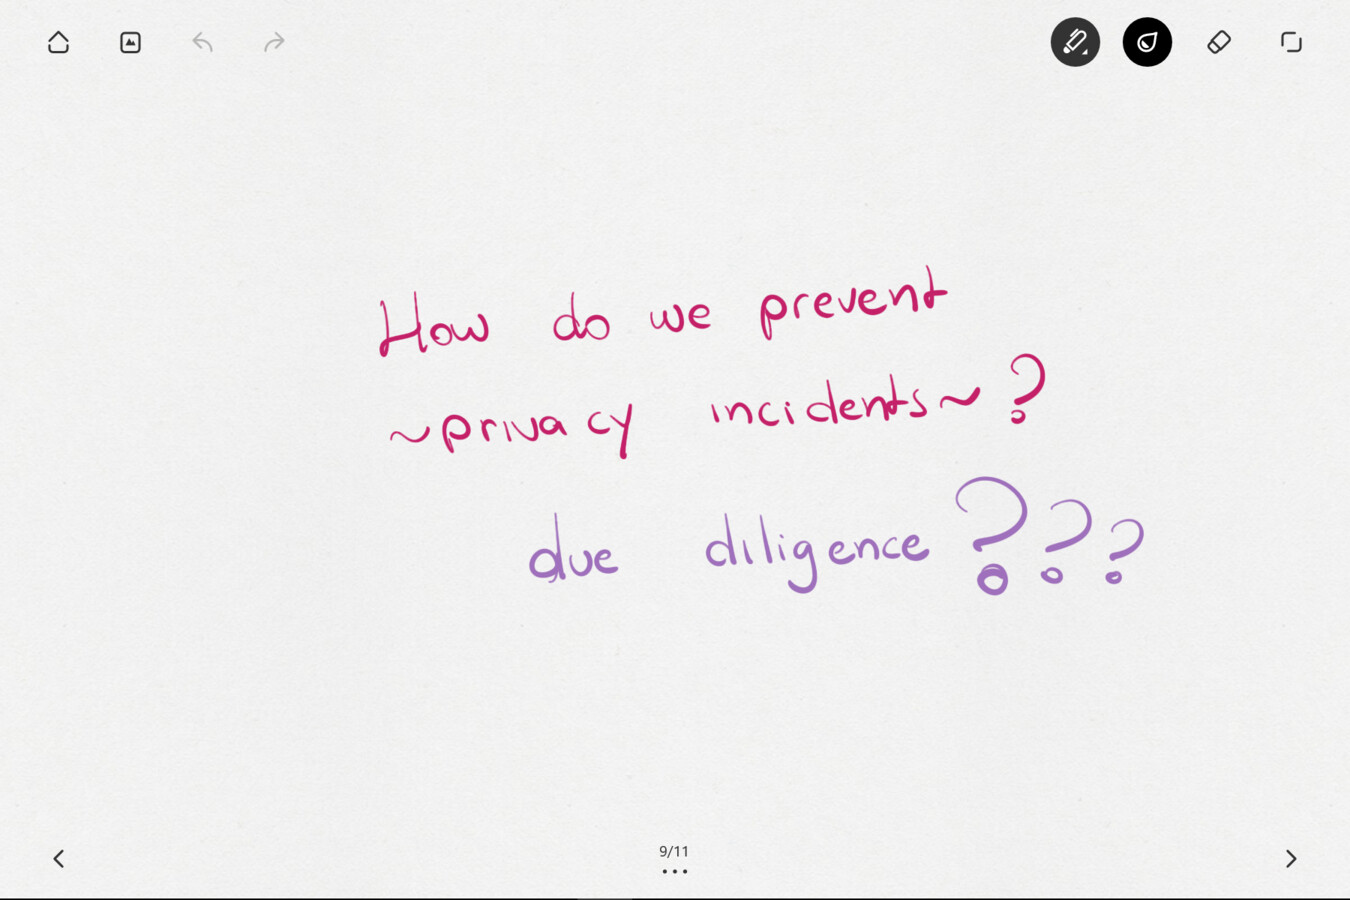 How do we prevent
~privacy incidents~?
due diligence???
9/11